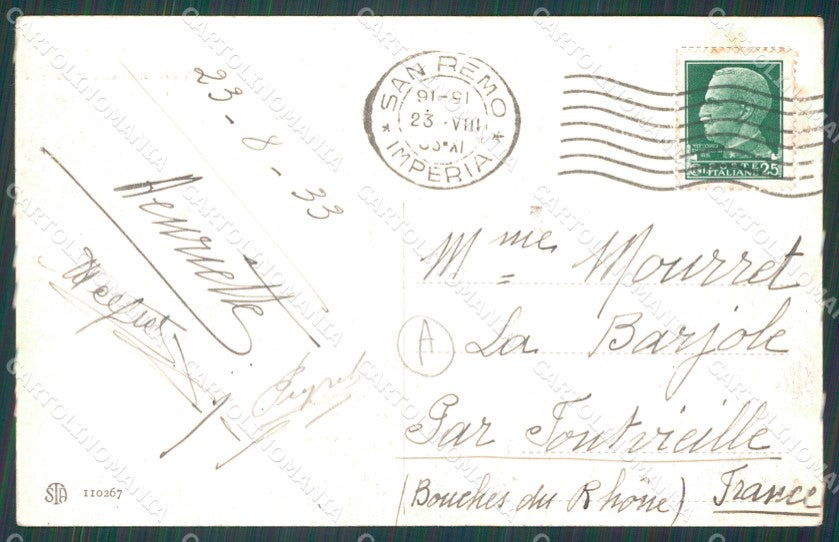 23 - 8 - 33
Henriette
Peyret
SAN REMO
15-16
23 · VIII
33 XI
* IMPERIA *
POSTE ITALIANE 25
Mme Mourret
A
La Barjole
Par Fontvieille
(Bouches du Rhône) France
STA 110267
CARTOLINOMANIA